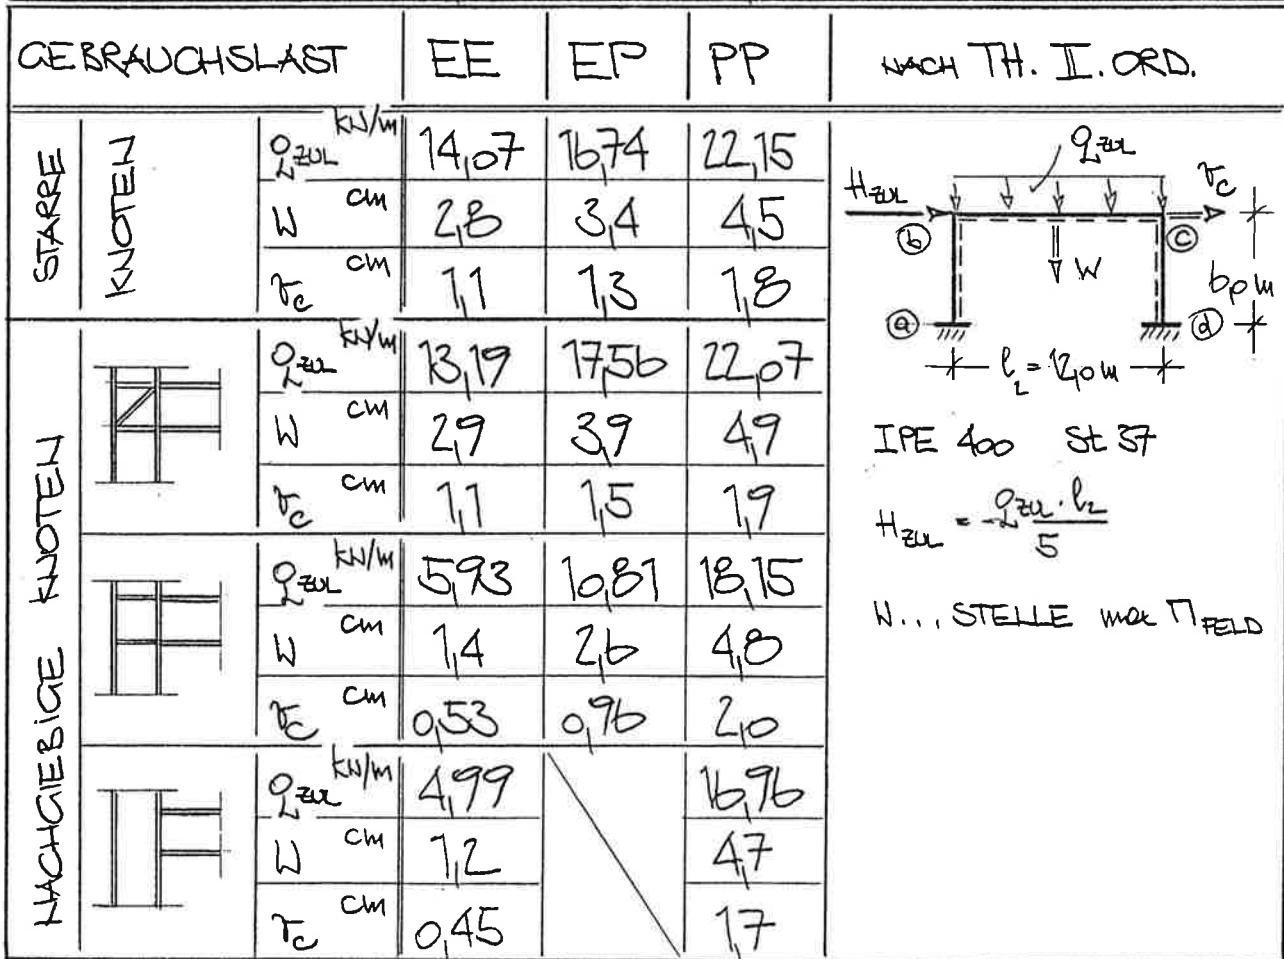 GEBRAUCHSLAST EE EP PP NACH TH. II. ORD.
STARRE KNOTEN
q ZUL kN/m 14,07 16,74 22,15
W cm 2,8 3,4 4,5
v c cm 1,1 1,3 1,8
NACHGIEBIGE KNOTEN
q ZUL kN/m 13,19 17,56 22,07
W cm 2,9 3,9 4,9
v c cm 1,1 1,5 1,9
q ZUL kN/m 5,93 10,81 18,15
W cm 1,4 2,6 4,8
v c cm 0,53 0,96 2,0
q ZUL kN/m 4,99 16,96
W cm 1,2 4,7
v c cm 0,45 1,7
q ZUL
H ZUL v c
b c
W
6,0 m
a d
l₂ = 12,0 m
IPE 400 St 37
H ZUL = q ZUL · l₂ / 5
W... STELLE max M FELD